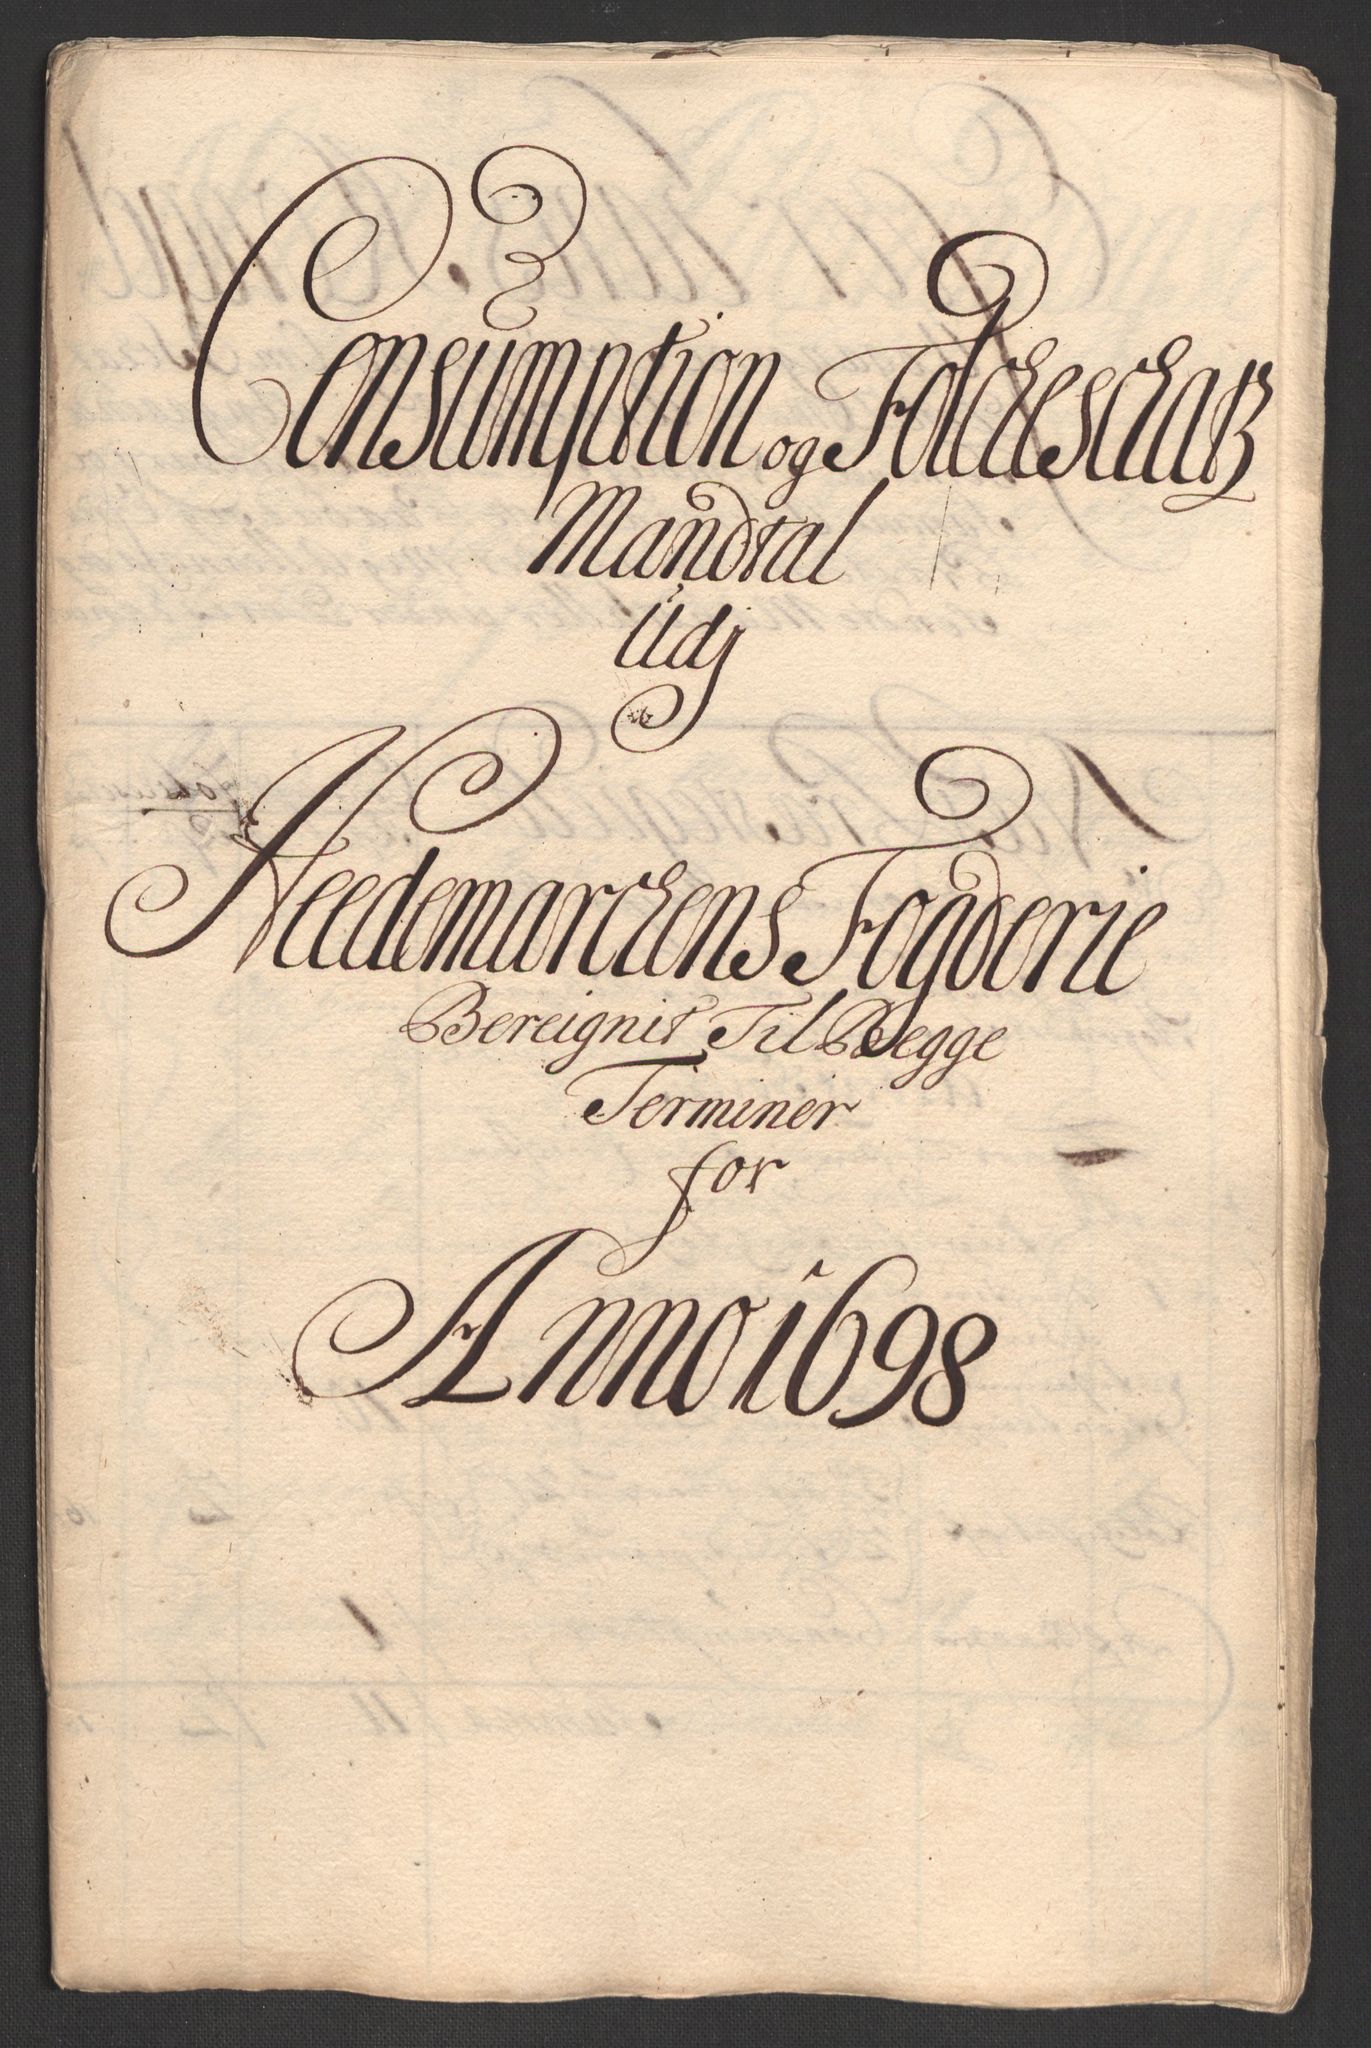 Consumption og Folckeschatz
Mandtal
Udj
Heedemarckens Fogderie
Bereignit Til Begge
Terminer
for
Anno 1698